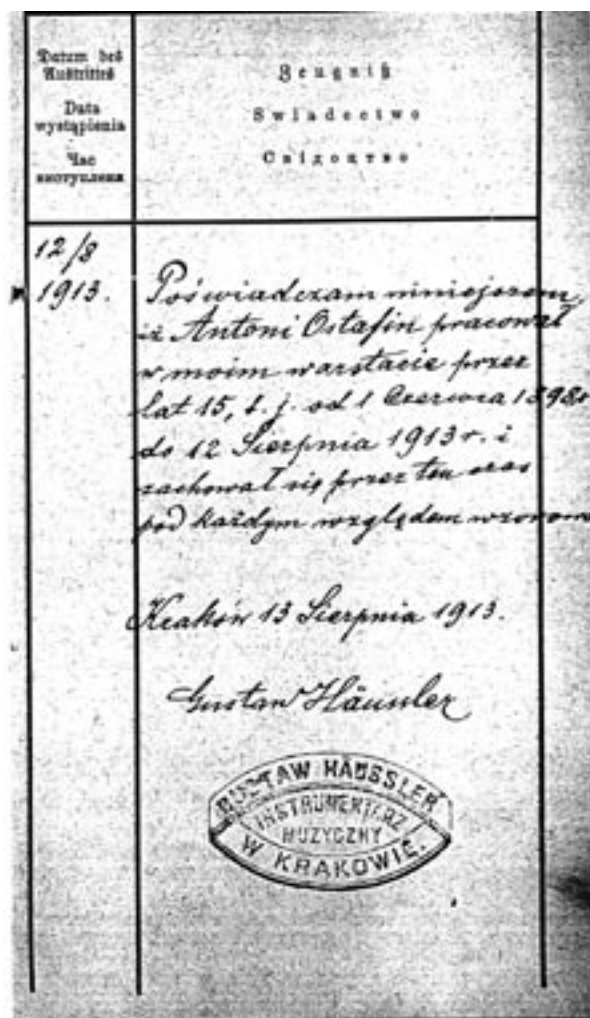 Datum des
Austrittes
Data
wystąpienia
Час
выступлена
Zeugniß
Świadectwo
Свідоцтво
12/8
1913.
Poświadczam niniejszem,
iż Antoni Ostafin pracował
w moim warstacie przez
lat 15, t. j. od 1 Czerwca 1898r
do 12 Sierpnia 1913 r. i
zachował się przez ten czas
pod każdym względem wzorowo
Kraków 13 Sierpnia 1913.
Gustaw Häussler
GUSTAW HÄUSSLER
INSTRUMENTARZ
MUZYCZNY
W KRAKOWIE.